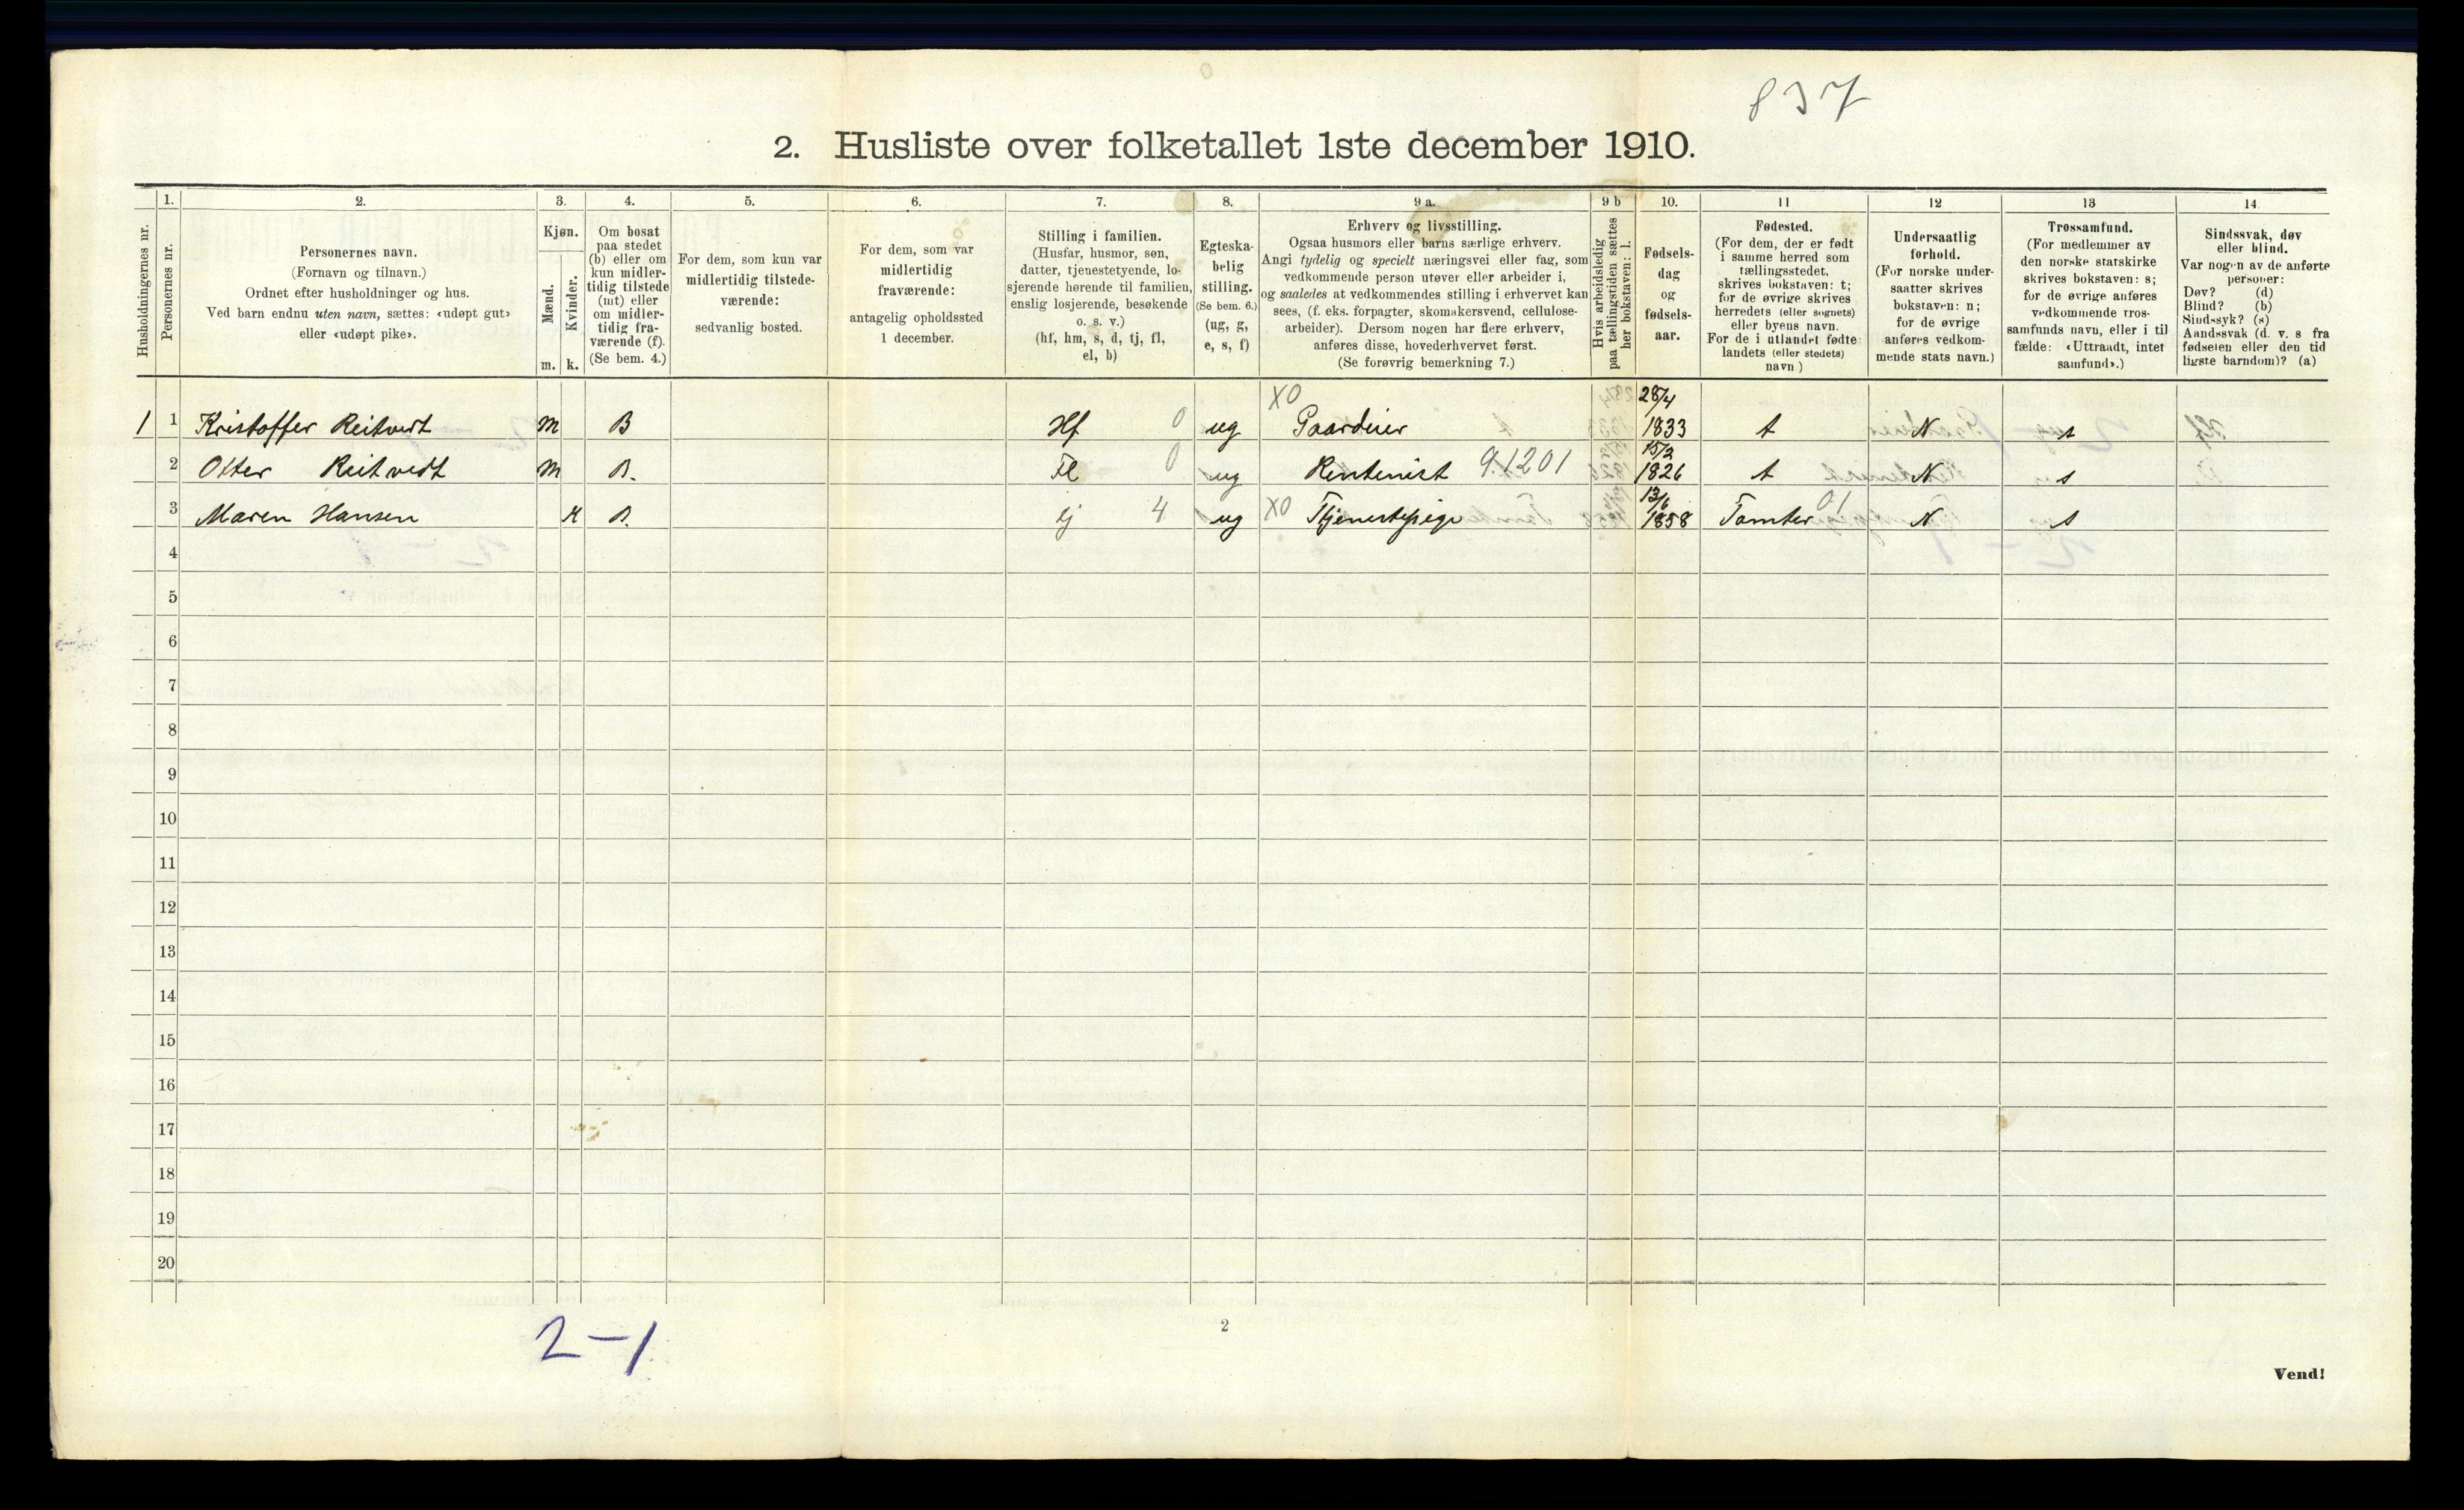 837
2. Husliste over folketallet 1ste december 1910.
Husholdningernes nr.
1.
Personernes nr.
2.
Personernes navn.
(Fornavn og tilnavn.)
Ordnet efter husholdninger og hus.
Ved barn endnu uten navn, sættes: «udøpt gut»
eller «udøpt pike».
3.
Kjøn.
Mænd.
Kvinder.
m. k.
4.
Om bosat
paa stedet
(b) eller om
kun midler-
tidig tilstede
(mt) eller
om midler-
tidig fra-
værende (f).
(Se bem. 4.)
5.
For dem, som kun var
midlertidig tilstede-
værende:
sedvanlig bosted.
6.
For dem, som var
midlertidig
fraværende:
antagelig opholdssted
1 december.
7.
Stilling i familien.
(Husfar, husmor, søn,
datter, tjenestetyende, lo-
sjerende hørende til familien,
enslig losjerende, besøkende
o. s. v.)
(hf, hm, s, d, tj, fl,
el, b)
8.
Egteska-
belig
stilling.
(Se bem. 6.)
(ug, g,
e, s, f)
9 a.
Erhverv og livsstilling.
Ogsaa husmors eller barns særlige erhverv.
Angi tydelig og specielt næringsvei eller fag, som
vedkommende person utøver eller arbeider i,
og saaledes at vedkommendes stilling i erhvervet kan
sees, (f. eks. forpagter, skomakersvend, cellulose-
arbeider). Dersom nogen har flere erhverv,
anføres disse, hovederhvervet først.
(Se forøvrig bemerkning 7.)
9 b
Hvis arbeidsledig
paa tællingstiden sættes
her bokstaven: l.
10.
Fødsels-
dag
og
fødsels-
aar.
11
Fødested.
(For dem, der er født
i samme herred som
tællingsstedet,
skrives bokstaven: t;
for de øvrige skrives
herredets (eller sognets)
eller byens navn.
For de i utlandet fødte
landets (eller stedets)
navn )
12
Undersaatlig
forhold.
(For norske under-
saatter skrives
bokstaven: n;
for de øvrige
anføres vedkom-
mende stats navn.)
13
Trossamfund.
(For medlemmer av
den norske statskirke
skrives bokstaven: s;
for de øvrige anføres
vedkommende tros-
samfunds navn, eller i til
fælde: «Uttraadt, intet
samfund».)
14
Sindssvak, døv
eller blind.
Var nogen av de anførte
personer:
Døv? (d)
Blind? (b)
Sindssyk? (s)
Aandssvak (d. v. s fra
fødselen eller den tid
ligste barndom)? (a)
X0 28/4
1 1 Kristoffer Reitvedt M B Hf 0 ug Gaardeier 1833 t N s
15/2
2 Otter Reitvedt M B. Fl 0 ug Rentenist 9.1201 1826 t N s
13/6
3 Maren Hansen K B. tj 4 ug X0 Tjenestepige 1858 Tomter 01 N s
4
5
6
7
8
9
10
11
12
13
14
15
16
17
18
19
20
2 - 1
2
Vend!